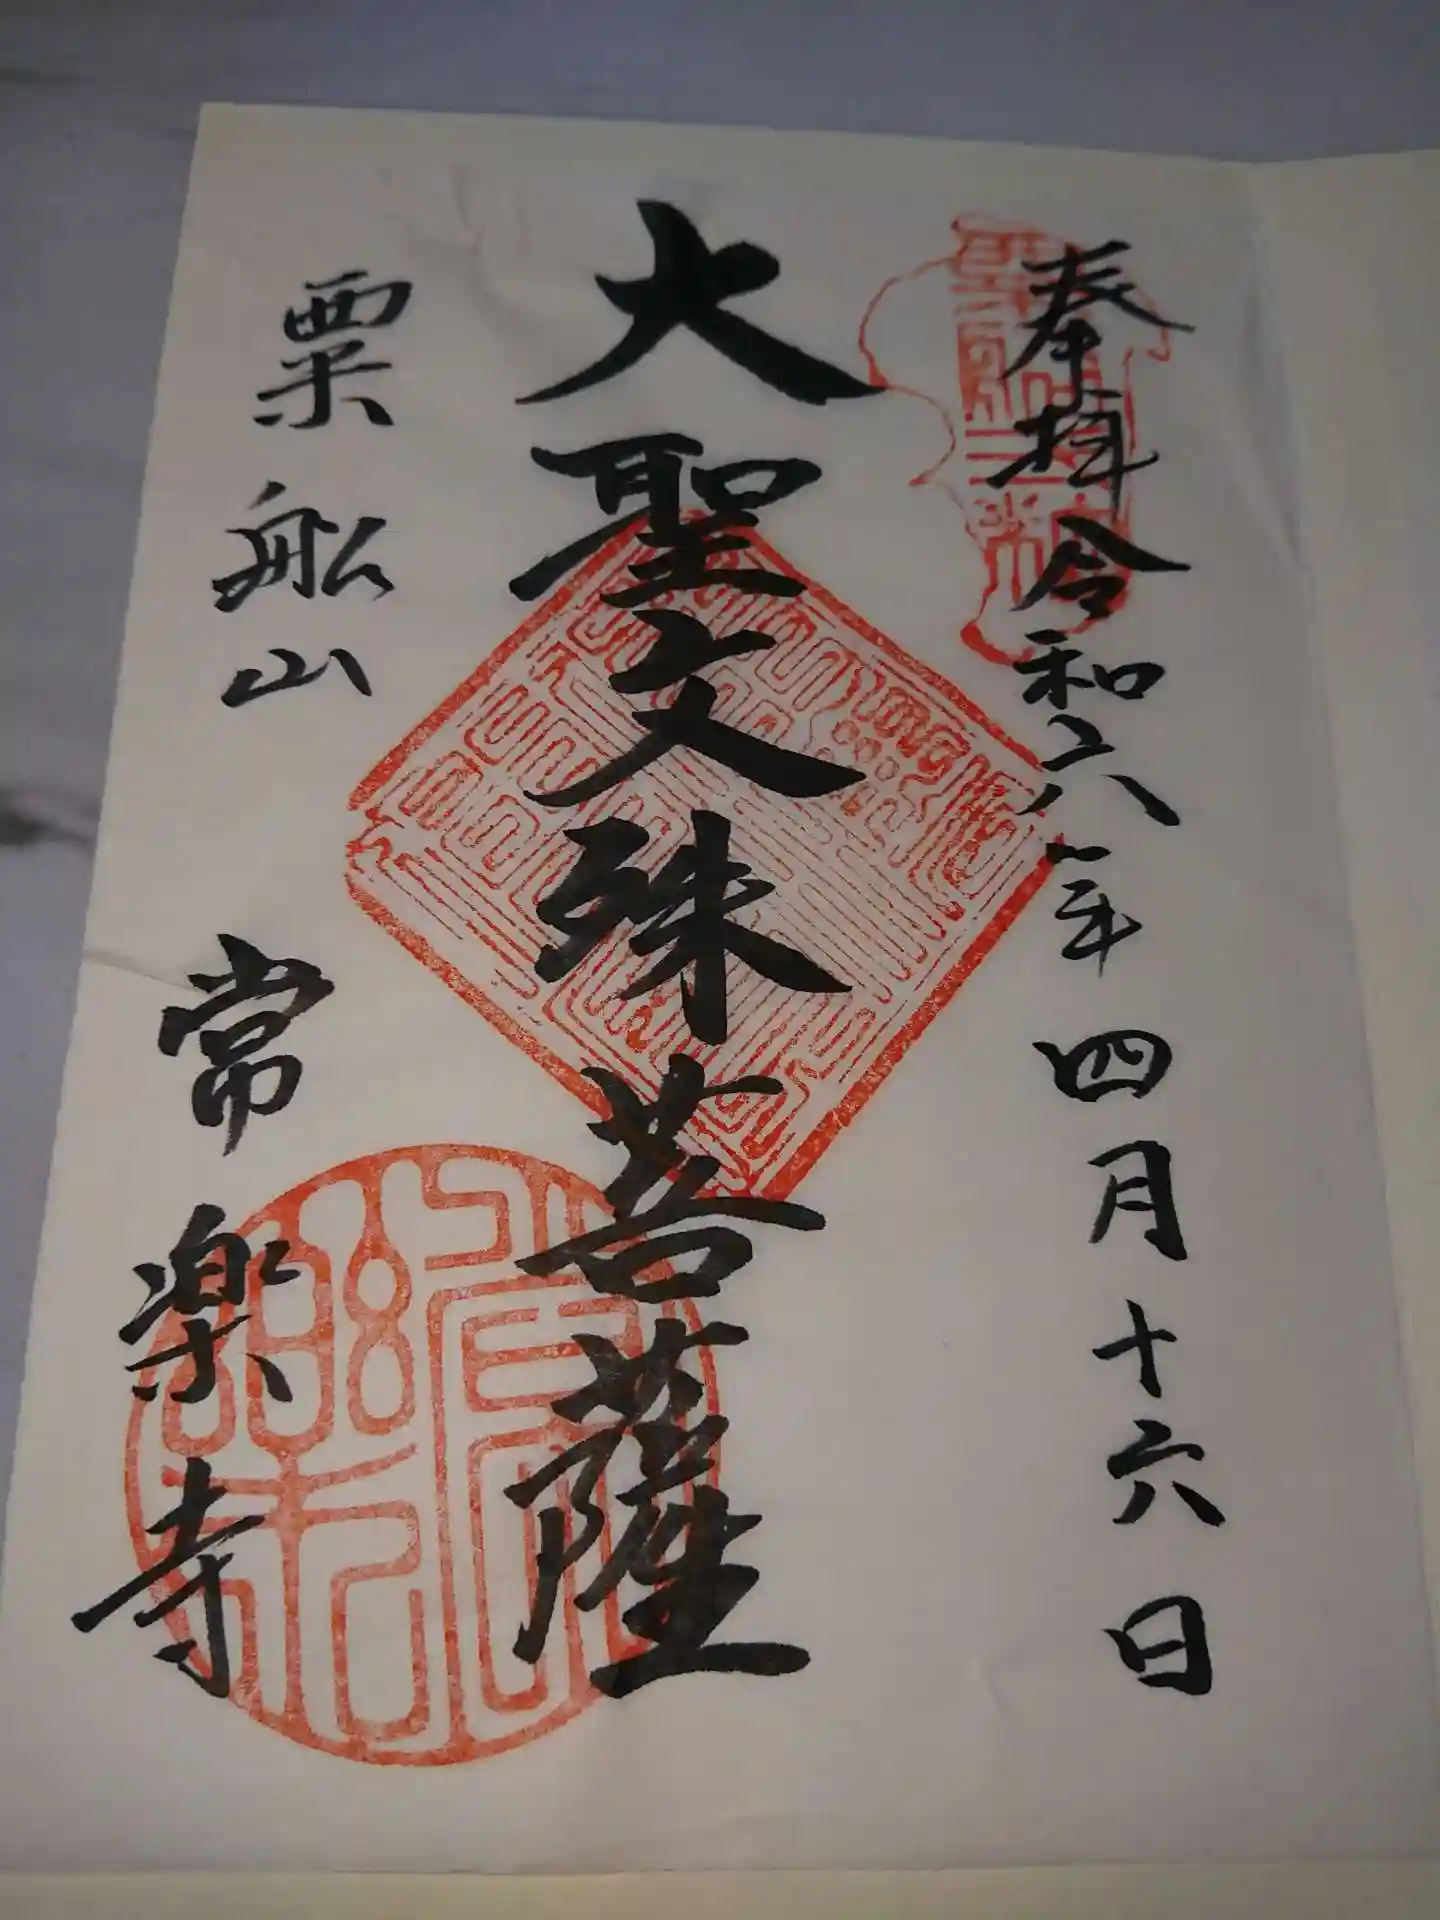 奉拝令和六年四月十六日
大聖文殊菩薩
粟船山 常楽寺